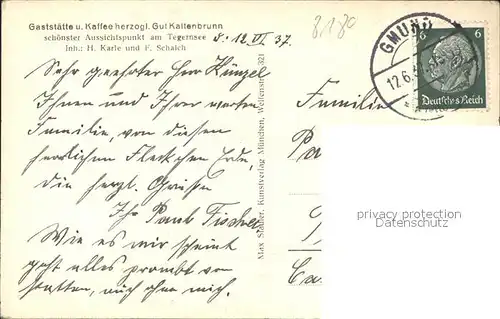 Gaststätte u. Kaffee herzogl. Gut Kaltenbrunn
schönster Aussichtspunkt am Tegernsee
Inh.: H. Karle und F. Schaich
12. VI 37.
Sehr geehrter Herr Künzel
Ihnen und Ihrer werten
Familie, von diesem
herrlichen Fleckchen Erde,
die herzl. Grüßen
Ihr Paul Fischer
Wie es mir scheint
geht alles prombt von
statten, auch ohne mich.
Max Stadler, Kunstverlag München,
8180
GMUND
12.6.
6 6
Deutsches Reich
Familie
privacy protection
Datenschutz